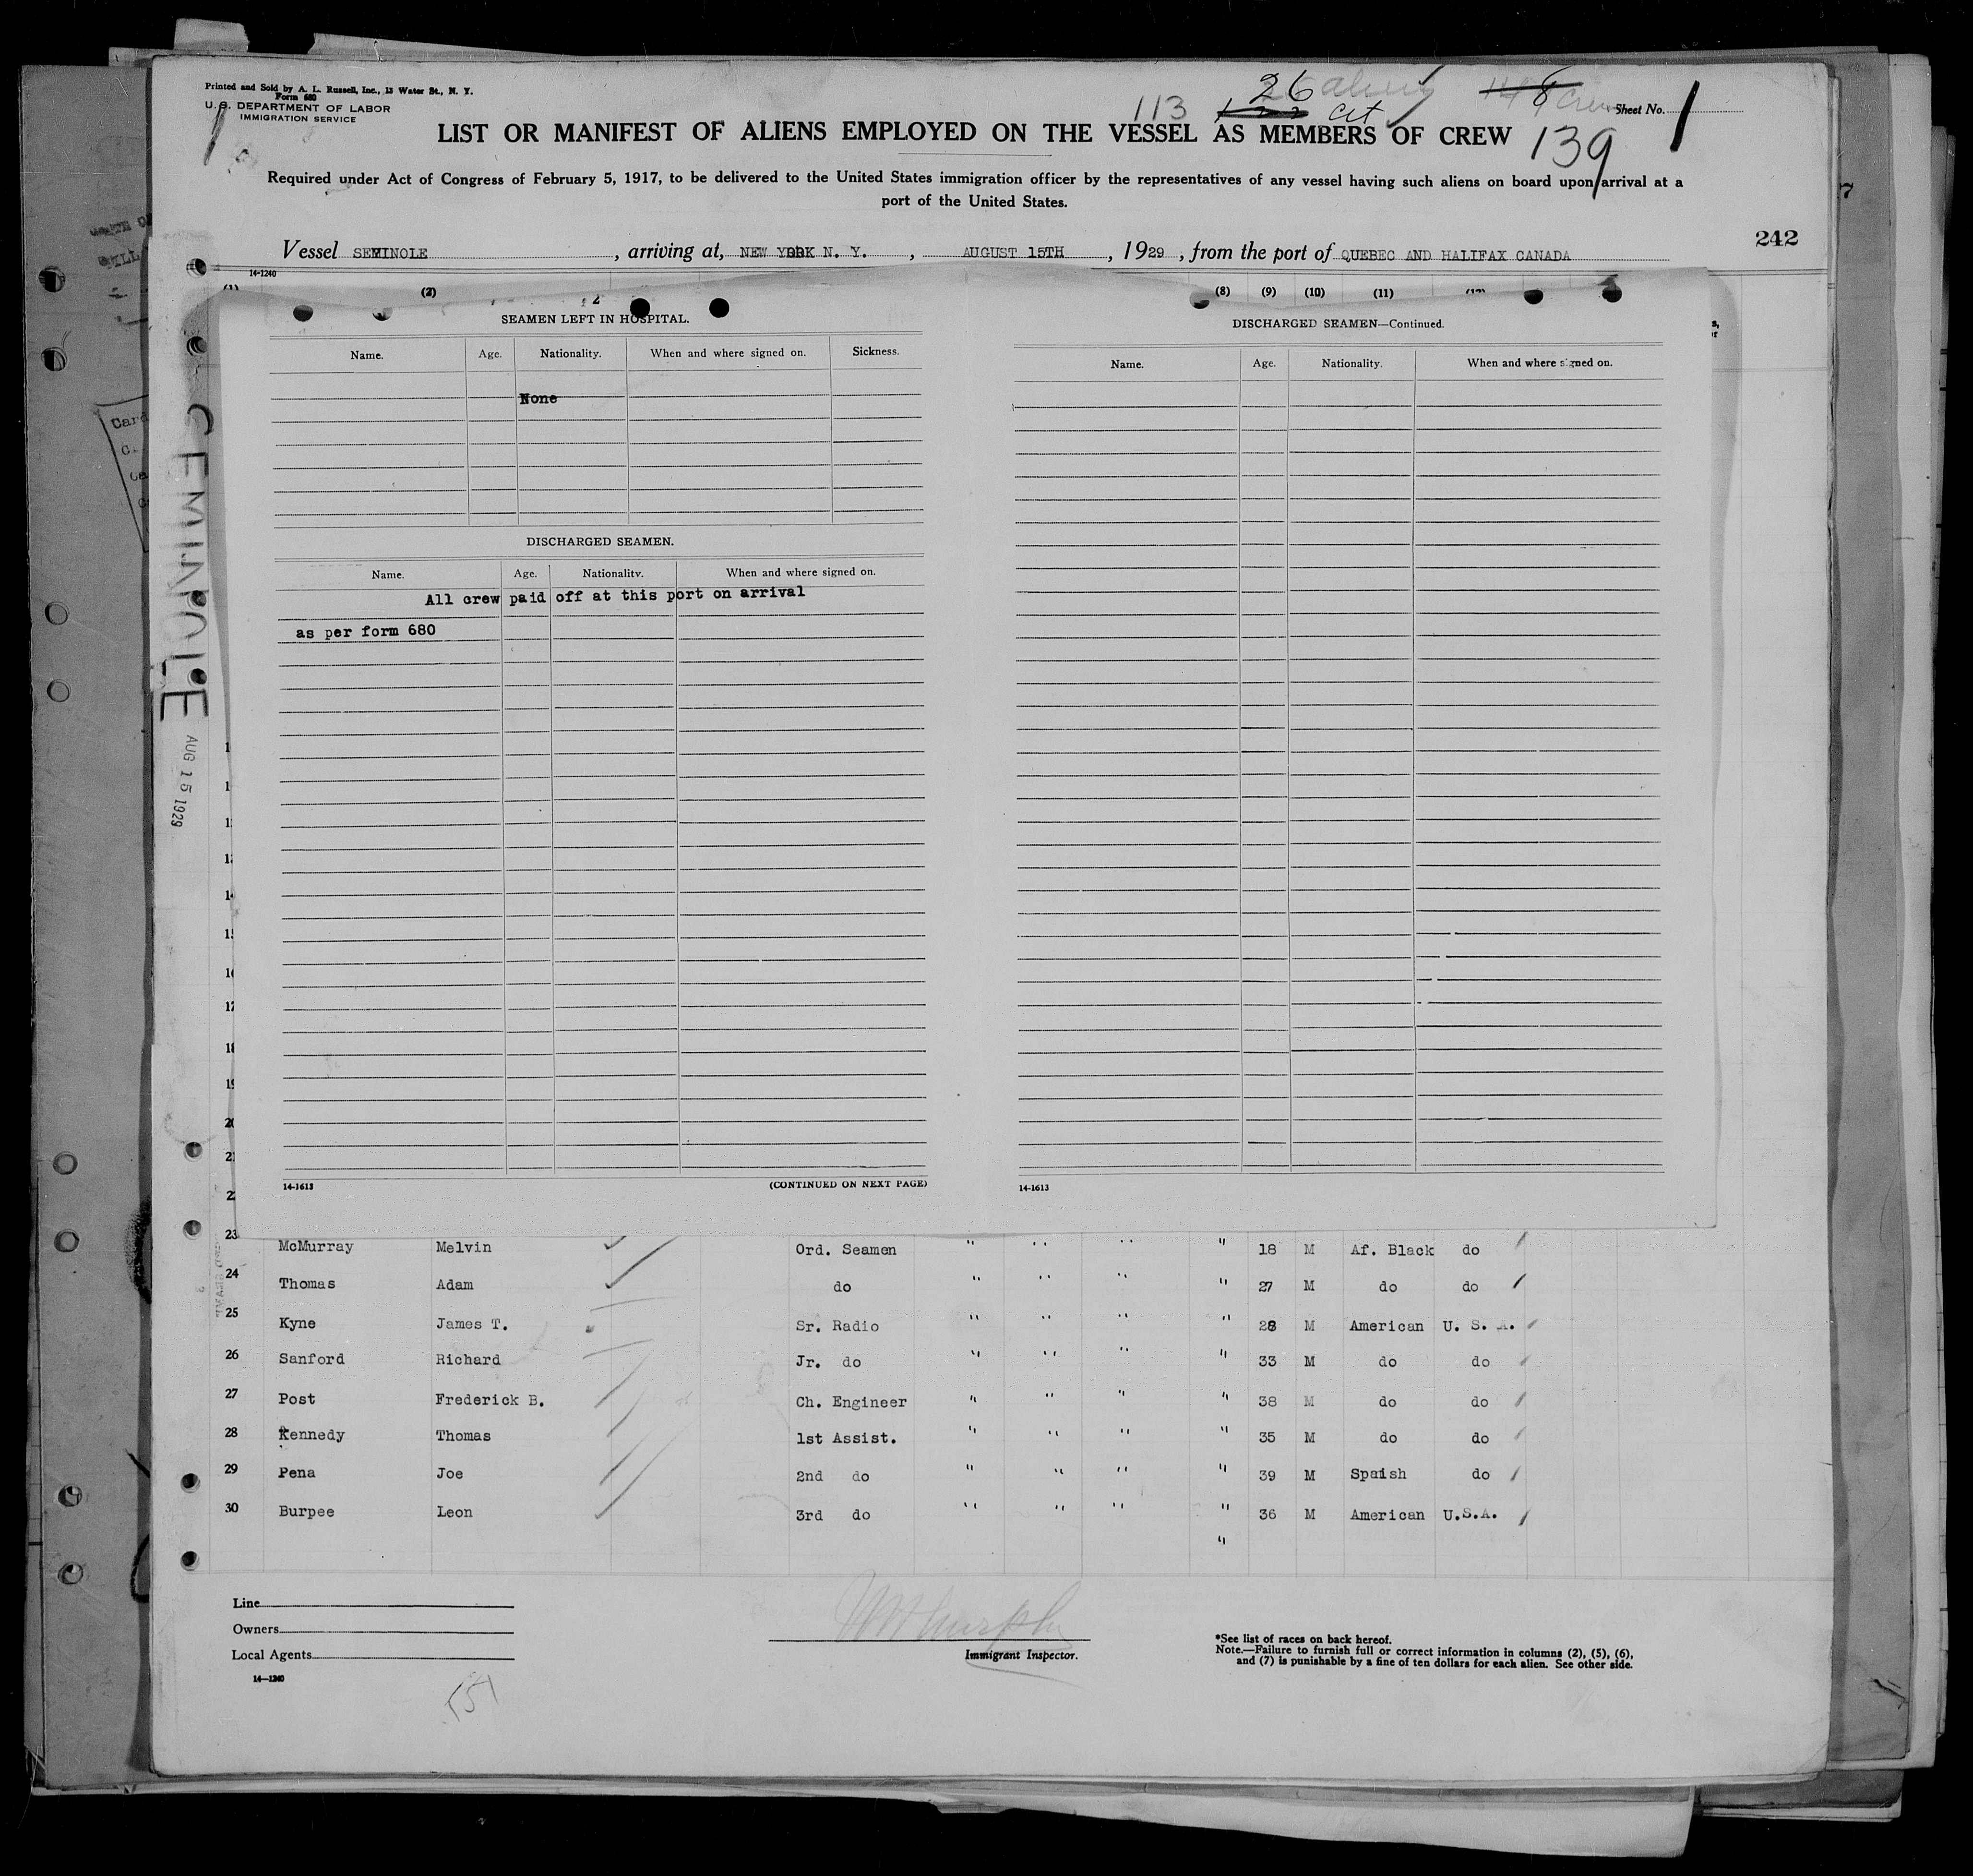 Printed and Sold by A. L. Russell, Inc., 13 Water St., N. Y.
Form 680
U. S. DEPARTMENT OF LABOR
IMMIGRATION SERVICE
26 aliens
113 cit
Sheet No. 1
139
LIST OR MANIFEST OF ALIENS EMPLOYED ON THE VESSEL AS MEMBERS OF CREW
Required under Act of Congress of February 5, 1917, to be delivered to the United States immigration officer by the representatives of any vessel having such aliens on board upon arrival at a
port of the United States.
242
Vessel SEMINOLE , arriving at, NEW YORK N. Y. , AUGUST 15TH , 1929 , from the port of QUEBEC AND HALIFAX CANADA
14-1240
(1) (2) (8) (9) (10) (11) (12)
SEAMEN LEFT IN HOSPITAL.
Name. Age. Nationality. When and where signed on. Sickness.
None
DISCHARGED SEAMEN.
Name. Age. Nationality. When and where signed on.
All crew paid off at this port on arrival
as per form 680
14-1613 (CONTINUED ON NEXT PAGE)
DISCHARGED SEAMEN—Continued.
Name. Age. Nationality. When and where signed on.
14-1613
SEMINOLE
AUG 15 1929
14
16
17
18
20
21
23 McMurray Melvin Ord. Seamen " " " " 18 M Af. Black do
24 Thomas Adam do " " " " 27 M do do
25 Kyne James T. Sr. Radio " " " " 28 M American U. S. A.
26 Sanford Richard Jr. do " " " " 33 M do do
27 Post Frederick B. Ch. Engineer " " " " 38 M do do
28 Kennedy Thomas 1st Assist. " " " " 35 M do do
29 Pena Joe 2nd do " " " " 39 M Spaish do
30 Burpee Leon 3rd do " " " " 36 M American U.S.A.
"
Line
Owners
Local Agents
14—1240
Immigrant Inspector.
*See list of races on back hereof.
Note.—Failure to furnish full or correct information in columns (2), (5), (6),
and (7) is punishable by a fine of ten dollars for each alien. See other side.